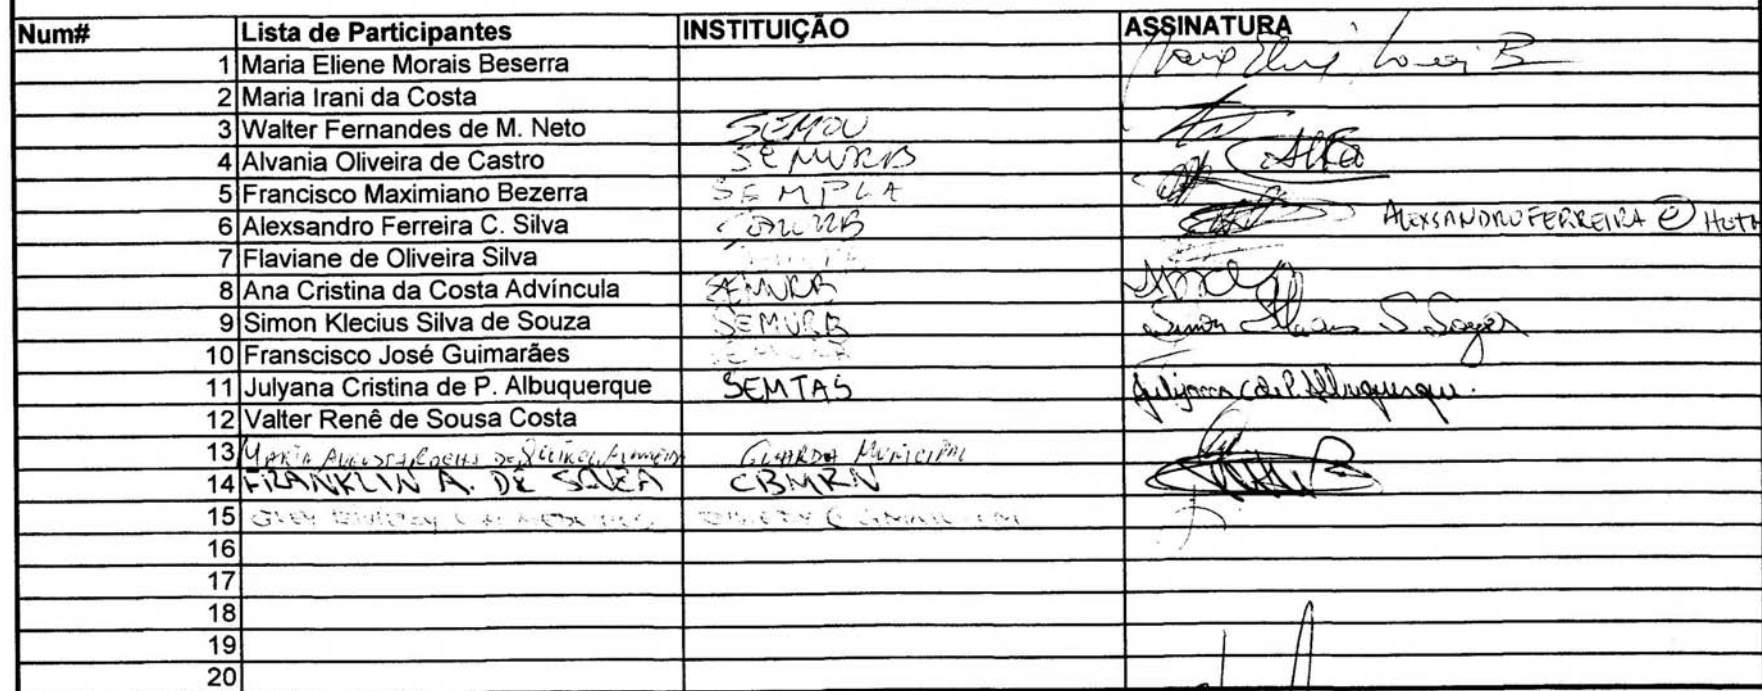 Num# Lista de Participantes INSTITUIÇÃO ASSINATURA
1 Maria Eliene Morais Beserra
2 Maria Irani da Costa
3 Walter Fernandes de M. Neto SEMOV
4 Alvania Oliveira de Castro SEMURB
5 Francisco Maximiano Bezerra SEMPLA
6 Alexsandro Ferreira C. Silva ALEXSANDROFERREIRA @ HOTM
7 Flaviane de Oliveira Silva
8 Ana Cristina da Costa Advíncula SEMURB
9 Simon Klecius Silva de Souza SEMURB Simon
10 Franscisco José Guimarães SEMURB
11 Julyana Cristina de P. Albuquerque SEMTAS Julyana C de P. Albuquerque.
12 Valter Renê de Sousa Costa
13 MARIA AUGUSTA GUARDA MUNICIPAL
14 FRANKLIN A. DE SOUZA CBMRN
15
16
17
18
19
20